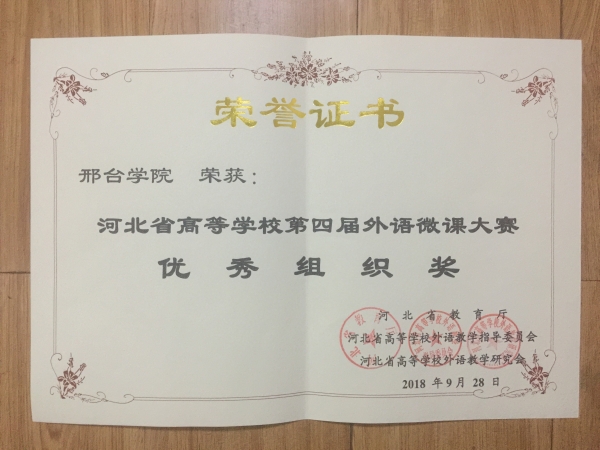 荣誉证书
邢台学院 荣获：
河北省高等学校第四届外语微课大赛
优秀组织奖
河北省教育厅
河北省高等学校外语教学指导委员会
河北省高等学校外语教学研究会
2018 年 9 月 28 日